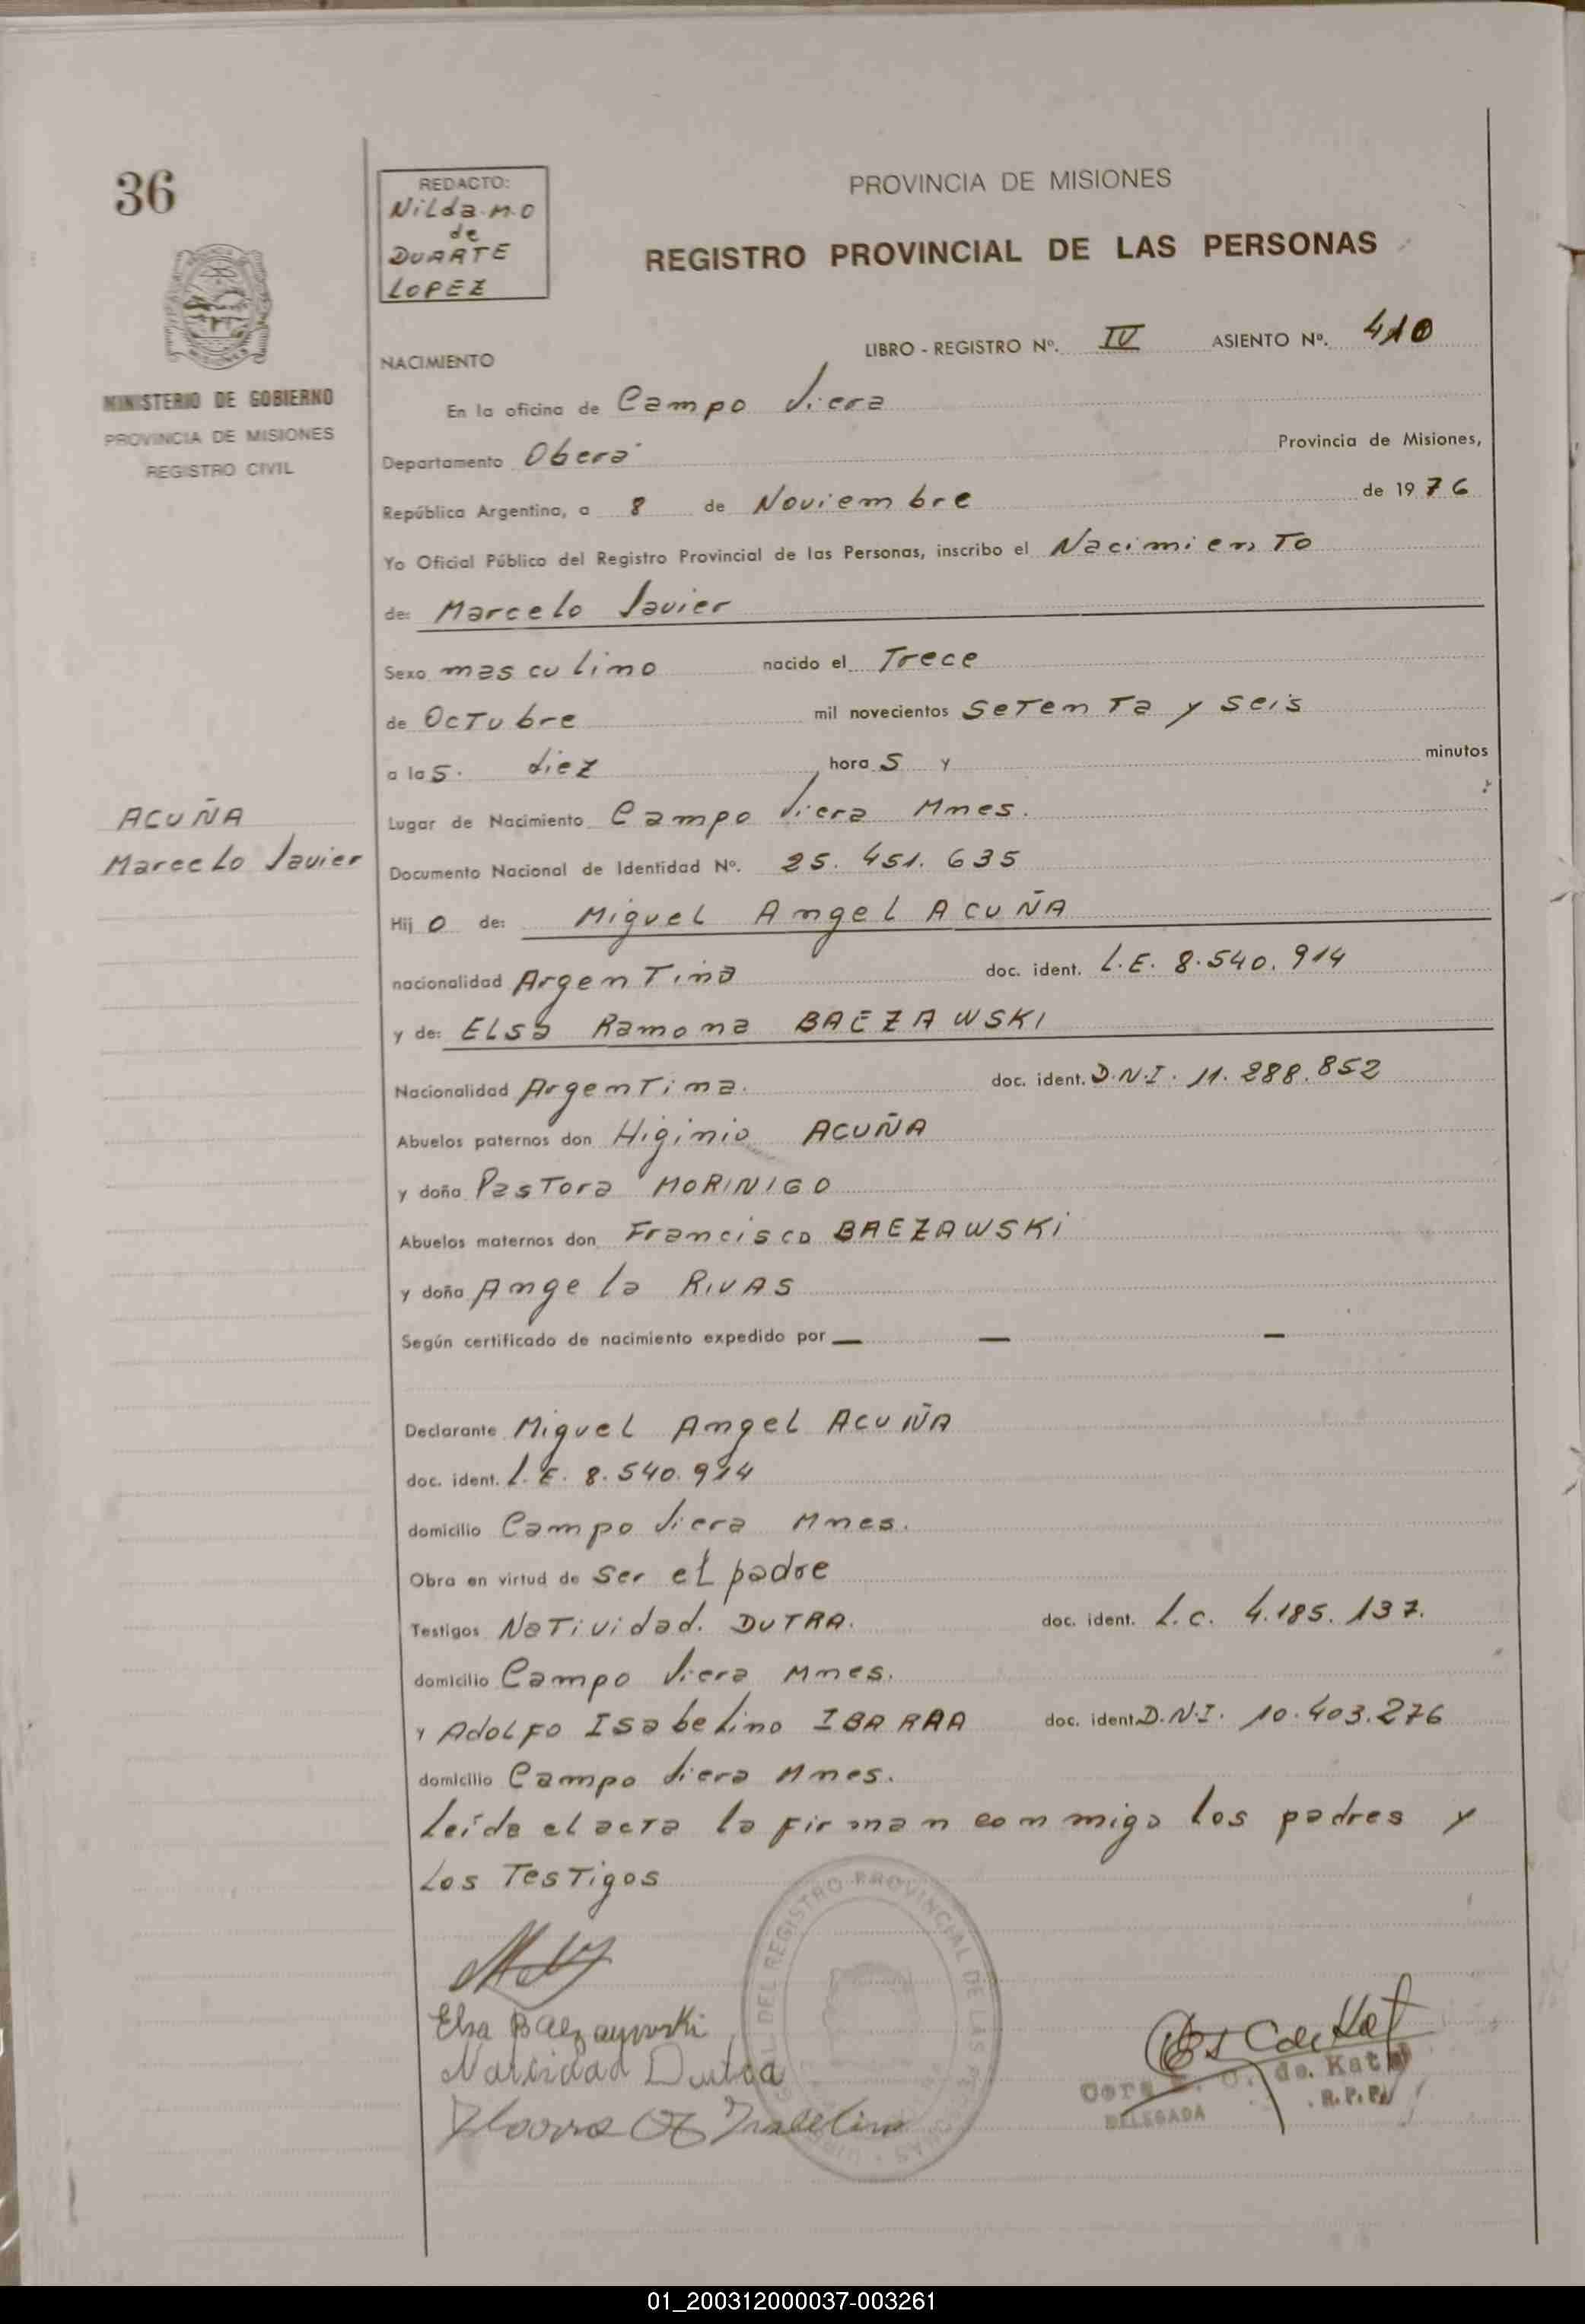 36
REDACTO:
Nilda M.O
de
DUARTE
LOPEZ
PROVINCIA DE MISIONES
REGISTRO PROVINCIAL DE LAS PERSONAS
MINISTERIO DE GOBIERNO
PROVINCIA DE MISIONES
REGISTRO CIVIL
NACIMIENTO
LIBRO - REGISTRO Nº. IV ASIENTO Nº. 410
En la oficina de Campo Viera
Departamento Oberá Provincia de Misiones,
República Argentina, a 8 de Noviembre de 1976
Yo Oficial Público del Registro Provincial de las Personas, inscribo el Nacimiento
de: Marcelo Javier
Sexo masculino nacido el Trece
de Octubre mil novecientos setenta y seis
a las. diez horas y minutos
ACUÑA
Marcelo Javier
Lugar de Nacimiento Campo Viera Mnes.
Documento Nacional de Identidad Nº. 25.451.635
Hijo de: Miguel Angel ACUÑA
nacionalidad Argentina doc. ident. L.E. 8.540.914
y de: Elsa Ramona BAEZAWSKI
Nacionalidad Argentina. doc. ident. D.N.I. 11.288.852
Abuelos paternos don Higinio ACUÑA
y doña Pastora MORINIGO
Abuelos maternos don Francisco BAEZAWSKi
y doña Angela RIVAS
Según certificado de nacimiento expedido por — — —
Declarante Miguel Angel ACUÑA
doc. ident. L.E. 8.540.914
domicilio Campo Viera Mnes.
Obra en virtud de ser el padre
Testigos Natividad. DUTRA. doc. ident. L.C. 4.185.137.
domicilio Campo Viera Mnes.
y ADOLFO Isabelino IBARRA doc. ident. D.N.I. 10.403.276
domicilio Campo Viera Mnes.
Leída el acta la firman conmigo los padres y
los Testigos
Elsa Baezawski
Natividad Dutra
Ibarra Isabelino
DEL REGISTRO PROVINCIAL DE LAS PERSONAS
de Katz
DELEGADA R.P.P.
01_200312000037-003261